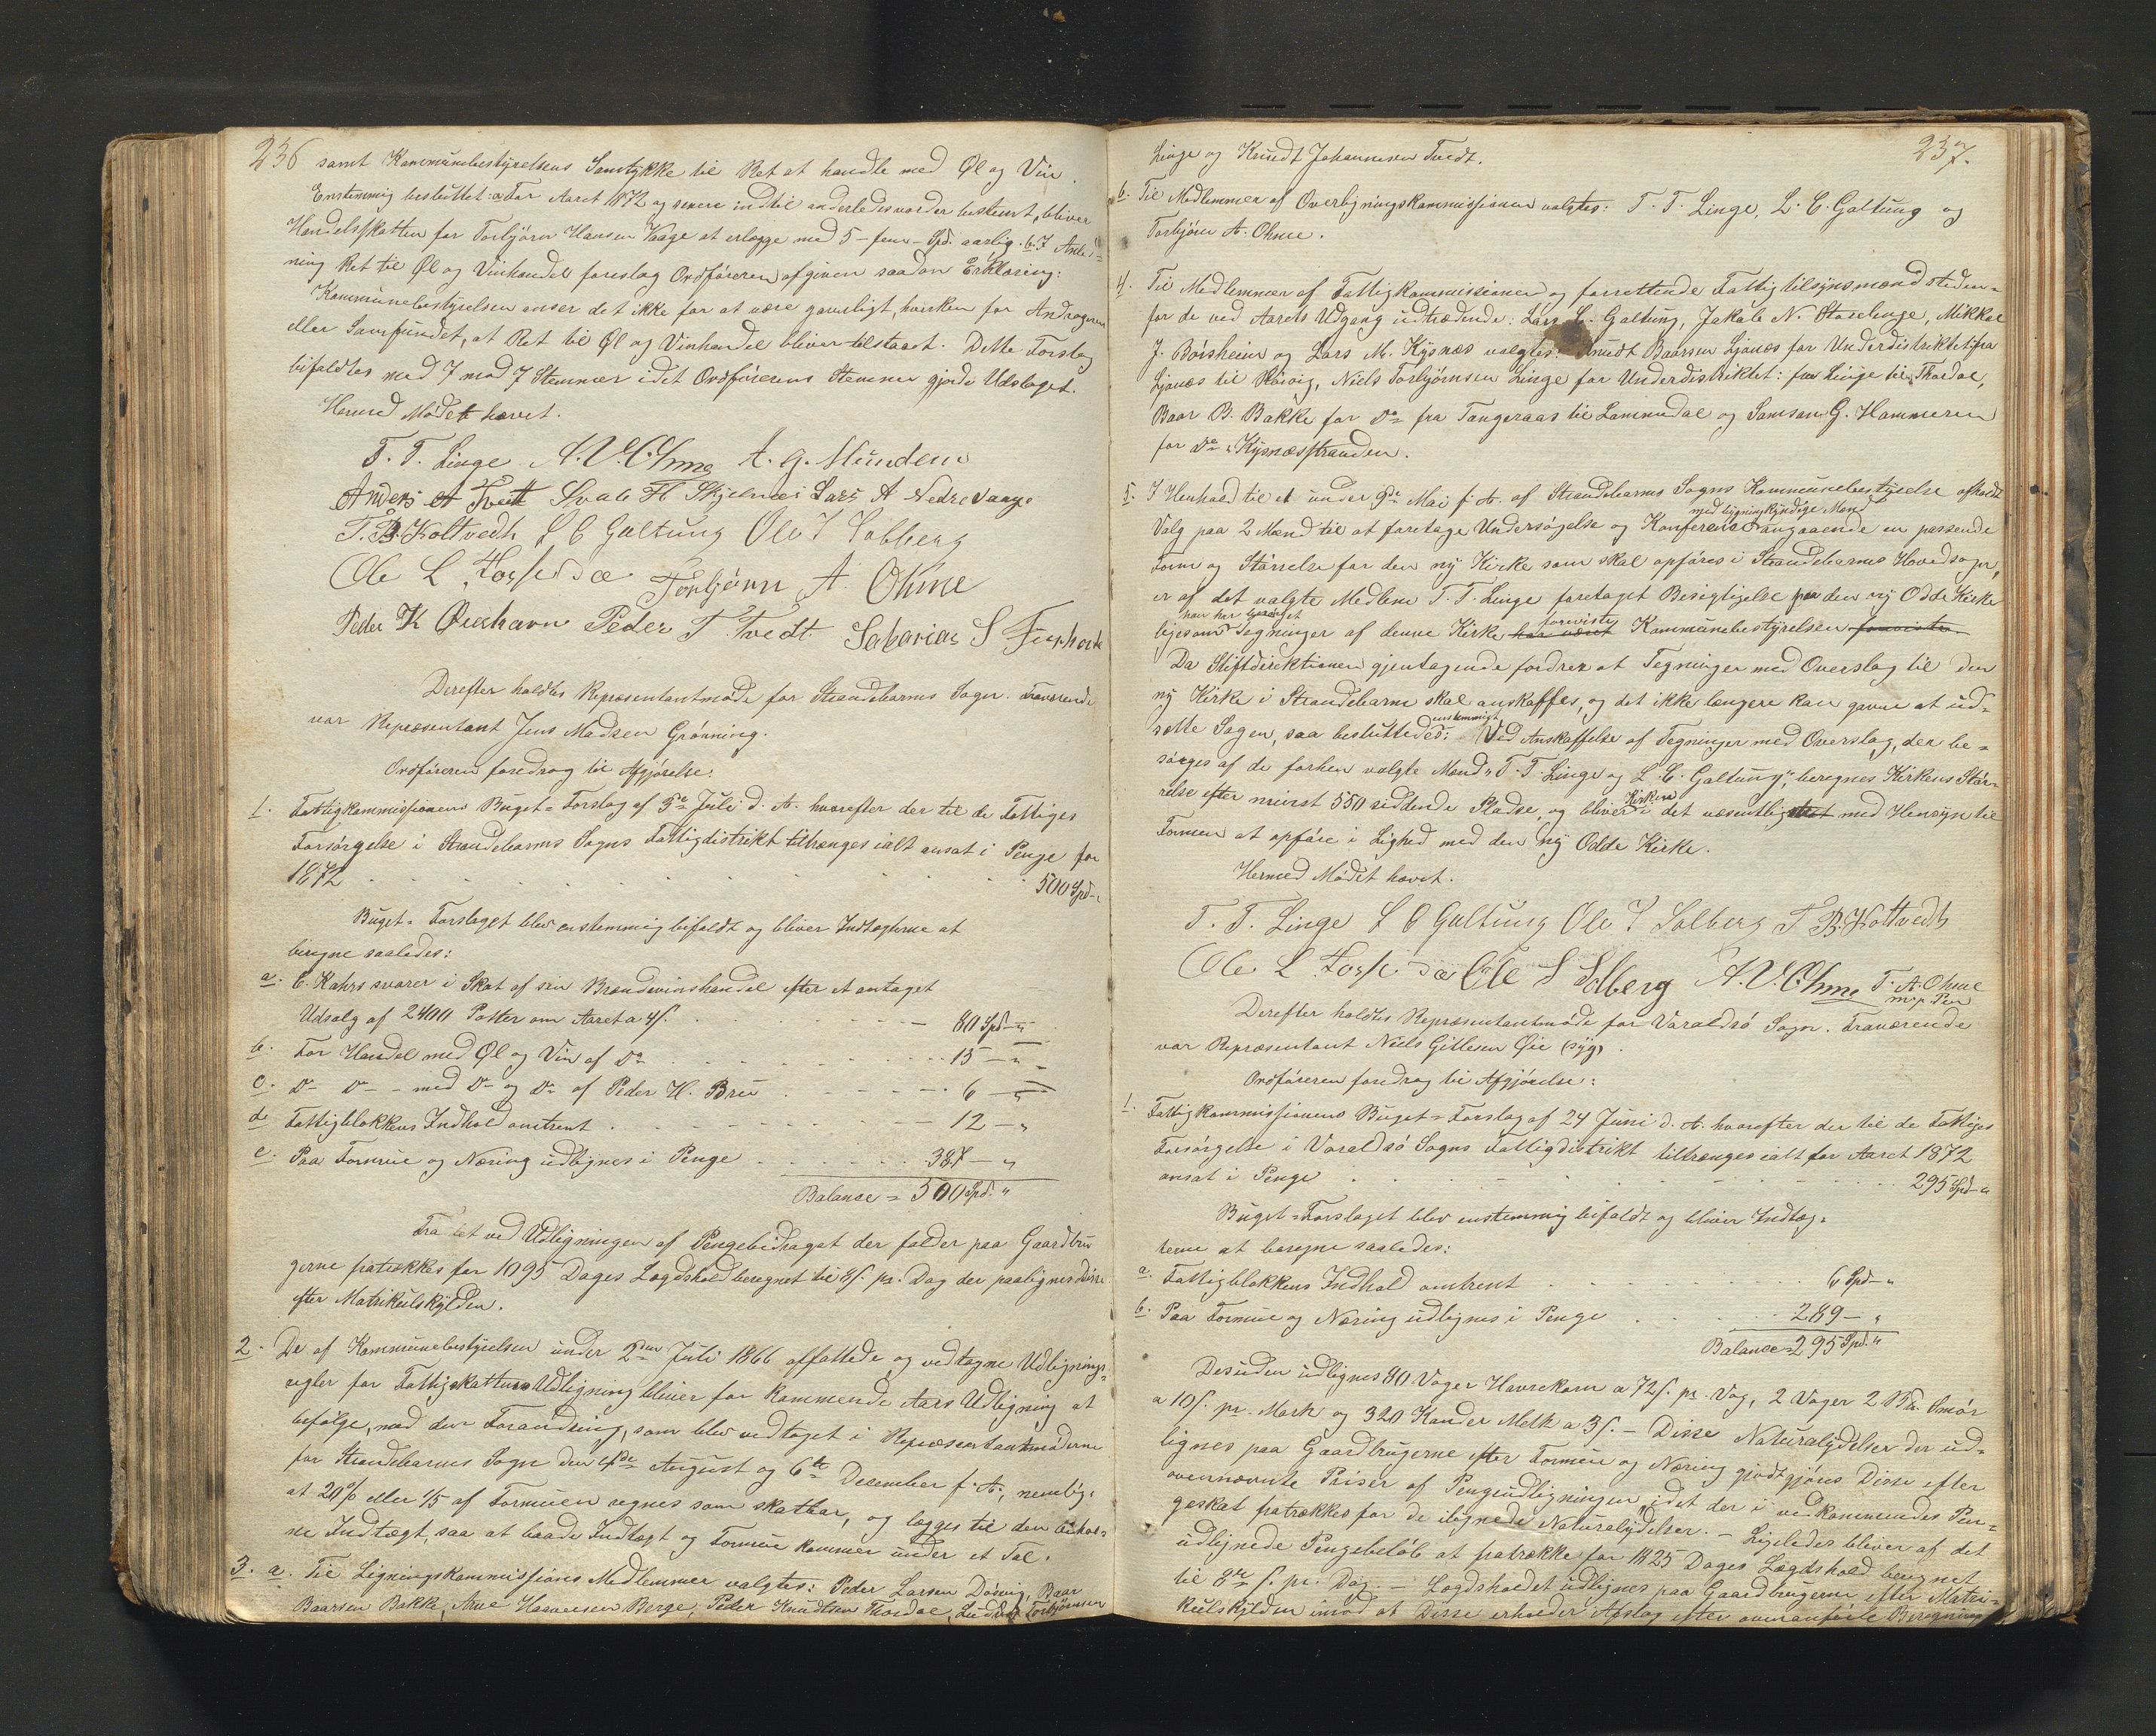 236
samt Kommunebestyrelsens Samtykke til Ret at handle med Øl og Viin.
Enstemmig besluttet: a For Aaret 1872 og senere indtil anderledes vorder bestemt, bliver
Handelsskatten for Torbjørn Hansen Vaage at erlægge med 5 - fem - Spd. aarlig. b. I Anled-
ning Ret til Øl og Viinhandel foreslog Ordføreren afgiven saadan Erklæring:
Kommunebestyrelsen anser det ikke for at være gavnligt, hverken for Andrageren
eller Samfundet, at Ret til Øl og Vinhandel bliver tilstaaet. Dette Forslag
bifaldtes med 7 mod 7 Stemmer idet Ordførerens Stemme gjorde Udslaget.
Hermed Mødet hævet.
T. T. Linge A. V. Ohme A. G. Mundem
Anders A Tvett Svale H Skjelnes Lars A Nedrevaage
T. B. Koltvedt L C Galtung Ole J Solberg
Ole L Fosse dæ Torbjørn A. Ohme
Peder K Øushavn Peder T. Tvedt Sakarias S
Derefter holdtes Repræsentantmøde for Strandebarms Sogn. Fraværende
var Repræsentant Jens Madsen Grønning.
Ordføreren foredrog til Afgjørelse:
1. Fattigkommissionens Buget-Forslag af 5te Juli d. A. hvorefter der til de Fattiges
Forsørgelse i Strandebarms Sogns Fattigdistrikt tiltrænges ialt ansat i Penge for
1872 . . . . . . . . . . . . 500 Spd - "
Buget-Forslaget blev enstemmig bifaldt og bliver Indtægterne at
beregne saaledes:
a. C. Kahrs svarer i Skat af sin Brændevinshandel efter et antaget
Udsalg af 2400 Potter om Aaret a 4 s. . . . . . 80 Spd - "
b. For Handel med Øl og Vin af Do . . . . . . 15 - "
c. Do Do - med Do og Do af Peder H. Bru . . . . . 6 - "
d Fattigblokkens Indhold omtrent . . . . . . 12 - "
e. Paa Formue og Næring udlignes i Penge . . . . . 387 - "
Balance = 500 Spd. "
Fra det ved Udligningen af Pengebidraget der falder paa Gaardbru
gerne fratrækkes for 1095 Dages Lægdshold beregnet til 8 s. pr. Dag der paalignes Disse
efter Matrikulskylden.
2. De af Kommunebestyrelsen under 2den Juli 1866 affattede og vedtagne Udlignings-
regler for Fattigskattens Udligning bliver for kommende Aars Udligning at
befølge, med den Forandring, som blev vedtaget i Repræsentantmøderne
for Strandebarms Sogn den 4de August og 6te December f. A., nemlig:
at 20% eller 1/5 af Formuen regnes som skatbar, og lægges til den behol-
ne Indtægt, saa at baade Indtægt og Formue kommer under et Tal.
3. a. Til Ligningskommissions Medlemmer valgtes: Peder Larsen Døsvig, Baar
Baarsen Bakke, Arne Haaversen Berge, Peder Knudtsen Thordal, Torbjørnsen
237.
Linge og Knudt Johannesen Tvedt.
b. Til Medlemmer af Overligningskommissionen valgtes: T. T. Linge, L. C. Galtung og
Torbjørn A. Ohme.
4. Til Medlemmer af Fattigkommissionen og forrettende Fattigtilsynsmænd steden-
for de ved Aarets Udgang udtrædende: Lars C. Galtung, Jakob N. Stoselinge, Mikkel
J. Børsheim og Lars M. Kysnæs valgtes: Knudt Baarsen Ljonæs for Underdistriktet fra
Ljonæs til Haavig, Niels Torbjørnsen Linge for Underdistriktet: fra Linge til Thordal,
Baar B. Bakke for Do fra Tangeraas til Lammedal og Samson G. Hammeren
for Do: Kysnæsstranden.
5. I Henhold til et under 9de Mai f. A. af Strandebarms Sogns Kommunebestyrelse afholdt
Valg paa 2 Mænd til at foretage Undersøgelse og Konferere med bygningskyndige Mænd angaaende en passende
Form og Størrelse for den ny Kirke som skal opføres i Strandebarms Hovedsogn,
er af det valgte Medlem T. T. Linge foretaget Besigtigelse paa den ny Odde Kirke
ligesom han har besørget Tegninger af denne Kirke har været foreviste Kommunebestyrelsen foreviste.
Da Stiftsdirektionen gjentagende fordrer at Tegninger med Overslag til den
ny Kirke i Strandebarm skal anskaffes, og det ikke længere kan gavne at ud-
sætte Sagen, saa besluttedes enstemmigt: Ved Anskaffelse af Tegninger med Overslag, der be-
sørges af de forhen valgte Mænd "T. T. Linge og L. C. Galtung", beregnes Kirkens Stør-
relse efter mindst 550 siddende Pladse, og bliver Kirken i det væsentligste med Hensyn til
Formen at opføre i Lighed med den ny Odde Kirke.
Hermed Mødet hævet.
T. T. Linge L C Galtung Ole J Solberg T B. Koltvedt
Ole L Fosse dæ Ole S Solberg A. V. Ohme T. A. Ohme
m. p. Pen
Derefter holdtes Repræsentantmøde for Varaldsø Sogn. Fraværende
var Repræsentant Niels Gitlesen Øie (syg).
Ordføreren foredrog til Afgjørelse:
1. Fattigkommissionens Buget-Forslag af 24 Juni d. A. hvorefter der til de Fattiges
Forsørgelse i Varaldsø Sogns Fattigdistrikt tiltrænges ialt for Aaret 1872
ansat i Penge . . . . . . . . . . 295 Spd - "
Buget-Forslaget blev enstemmig bifaldt og bliver Indtæg-
terne at beregne saaledes:
a. Fattigblokkens Indhold omtrent . . . . . . 6 Spd - "
b. Paa Formue og Næring udlignes i Penge . . . . . 289 - "
Balance = 295 Spd. "
Desuden udlignes 80 Voger Havrekorn a 72 s. pr. Vog, 2 Voger 2 Bd. Smør
a 10 s. pr. Mark og 320 Kander Melk a 3 s. - Disse Naturalydelser der ud-
lignes paa Gaardbrugerne efter Formue og Næring godtgjøres Disse efter
ovennævnte Priser af Pengeudligningen, idet der i vedkommendes Pen-
geskat fratrækkes for de ilignede Naturalydelser. - Ligeledes bliver af det
udlignede Pengebeløb at fratrække for 1825 Dages Lægdshold beregnet
til 8te s. pr. Dag. - Lægdsholdet udlignes paa Gaardbrugerne efter Matri-
kulskylden imod at Disse erholder Afslag efter ovenanførte Beregning